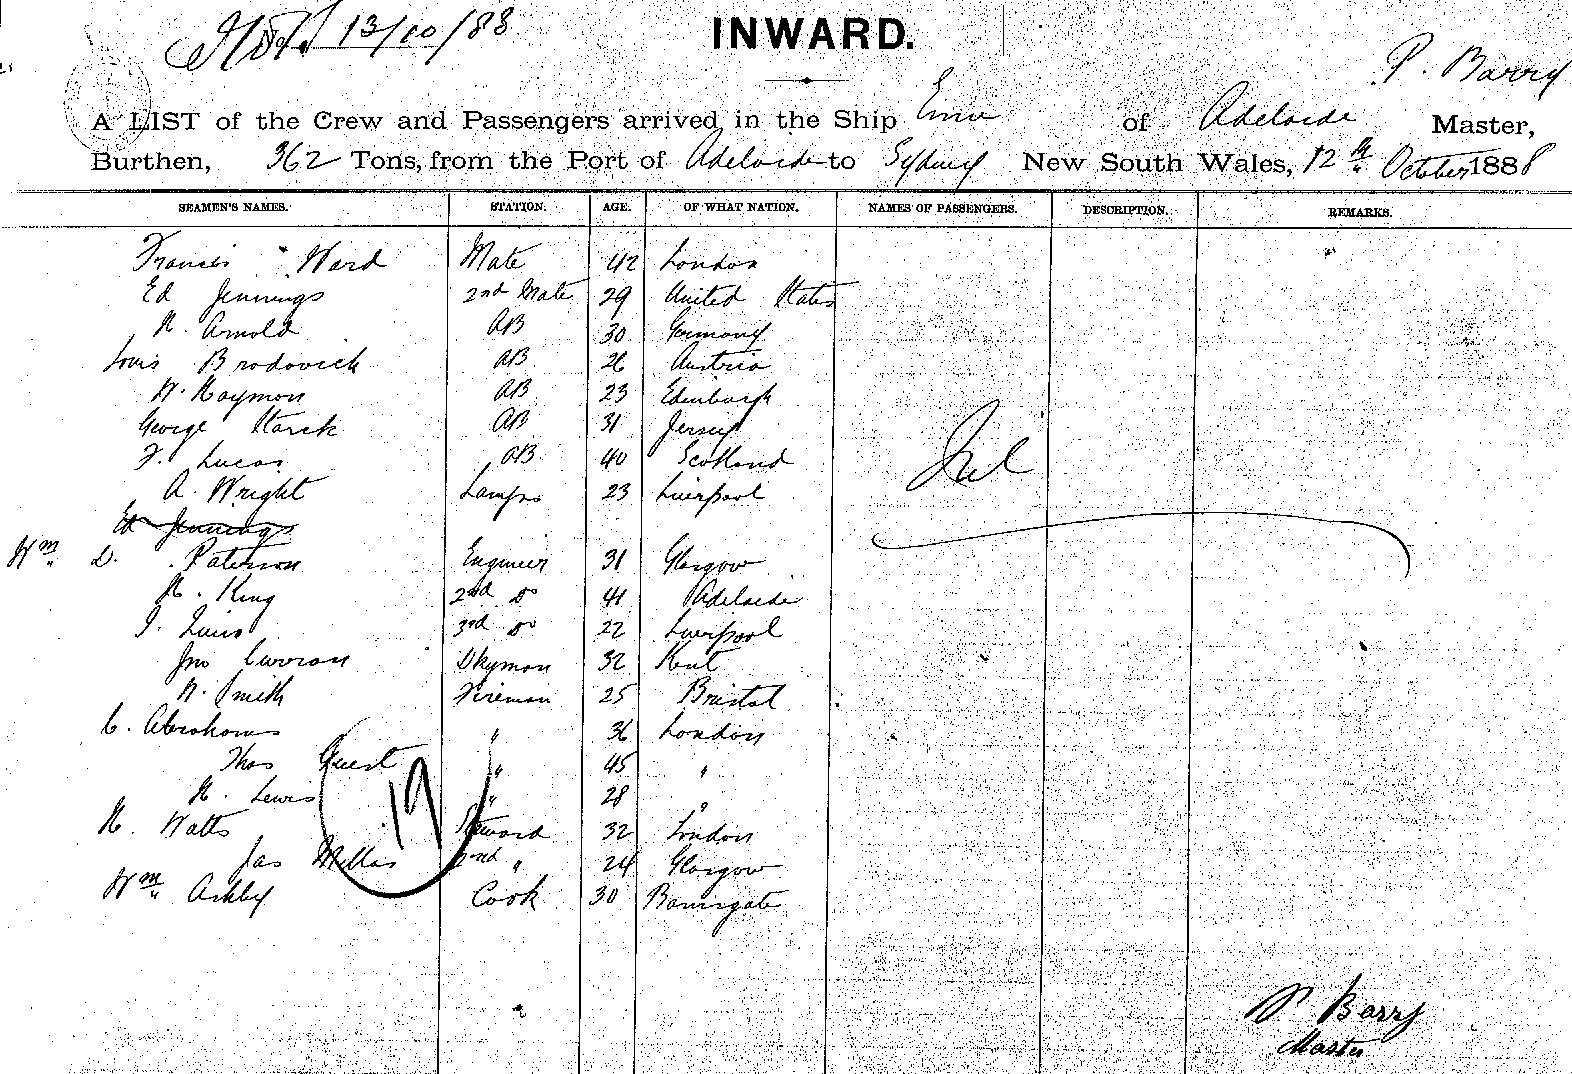 13/10/88
INWARD.
P. Barry
A LIST of the Crew and Passengers arrived in the Ship of Adelaide Master,
Burthen, 362 Tons, from the Port of Adelaide to Sydney New South Wales, 12th October 1888
SEAMEN'S NAMES. STATION. AGE. OF WHAT NATION. NAMES OF PASSENGERS. DESCRIPTION. REMARKS.
Francis Ward Mate 42 London
Ed Jennings 2nd Mate 29 United States
H. Arnold AB 30 Germany
Louis Brodovich AB 26 Austria
AB 23 Edinburgh
George Starck AB 31 Jersey
F. Lucas AB 40 Scotland
A. Wright Lamps 23 Liverpool
Nil
Ed Jennings
Wm D. Paterson Engineer 31 Glasgow
H. King 2nd Do 41 Adelaide
3rd Do 22 Liverpool
Jno Curran 32 Kent
W. Smith Fireman 25 Bristol
C. Abrahams " 36 London
Thos Guest " 45 "
H. Lewis " 28 "
19
H. Watts Steward 32 London
Jas Millar 2nd " 24 Glasgow
Wm Ashby Cook 30
P Barry
Master